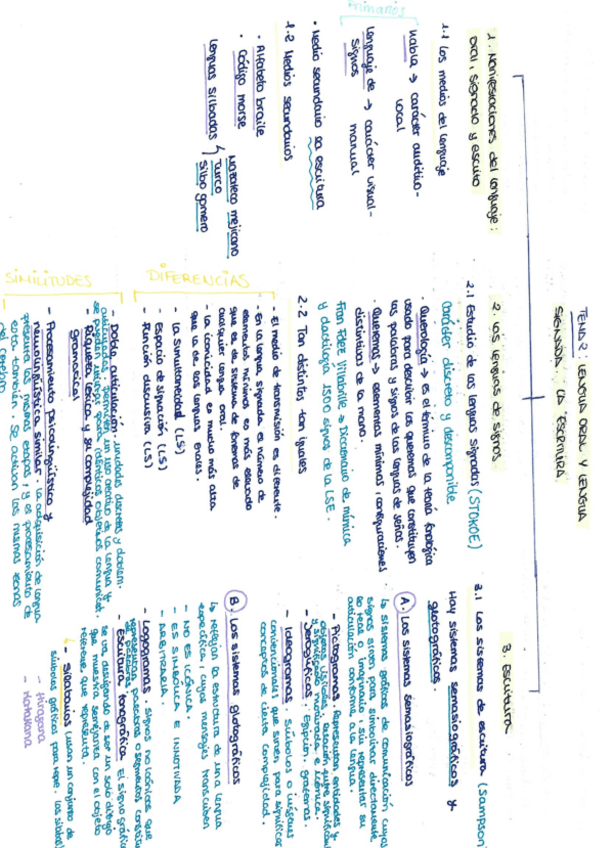 TEMA 2: LENGUA ORAL Y LENGUA
SIGNADA. LA ESCRITURA
1. Manifestaciones del lenguaje:
oral, signado y escrito
1.1 Los medios del lenguaje
Primarios
Habla → carácter auditivo-
vocal
Lenguaje de → carácter visual-
signos manual
• Medio secundario la escritura
1.2 Medios secundarios
• Alfabeto braile
• Código morse
Lenguas silbadas
Mazateco mejicano
Turco
Silbo gomero
2. Las lenguas de signos
2.1 Estudio de las lenguas signadas (STOKOE)
Carácter discreto y descomponible
• Querología → es el término de la teoría fonológica
usado para describir los queremas que constituyen
las palabras y signos de las lenguas de señas.
• Queremas → elementos mínimos, configuraciones
distintivas de la mano.
Fran Fdez Villabrille → Diccionario de mímica
y dactilogía 1500 signos de la LSE.
2.2 Tan distintos tan iguales
DIFERENCIAS
- El medio de transmisión es diferente.
- En la lengua signada el número de
elementos mínimos es más elevado
que el de sistema de fonemas de
cualquier lengua oral.
- La iconicidad es mucho más alta
que la de las lenguas orales.
- La simultaneidad (LS)
- Espacio de signación (LS)
- Función discursiva (LS)
SIMILITUDES
- Doble articulación. unidades discretas y
articuladas, permiten un uso creativo de la lengua y
se pueden utilizar para idénticos objetivos comunicat
- Riqueza léxica y su complejidad
gramatical
- Procesamiento psicolingüístico y
neurolingüístico similar. La adquisición de lengua
presenta las mismas etapas, y el procesamiento de
esta también. Se activan las mismas zonas
del cerebro.
3. Escritura
3.1 Los sistemas de escritura (Sampson)
Hay sistemas semasiográficos y
glotográficos.
A. Los sistemas semasiográficos
↳ Sistemas gráficos de comunicación cuyos
signos sirven para simbolizar directamente
lo real o imaginario, sin representar su
articulación conforme a la lengua.
- Pictogramas Representan entidades y
objetos visibles, relación entre significante
y significado motivada e icónica.
- Jeroglíficos. Egipcio,
- Ideogramas. Símbolos o imágenes
convencionales que sirven para significar
conceptos de cierta complejidad.
B. Los sistemas glotográficos
↳ Reflejan la estructura de una lengua
específica, cuyos mensajes transcriben
- NO ES ICÓNICA.
- ES SIMBÓLICA E INMOTIVADA
- ARBITRARIA.
- Logogramas. Signos no icónicos que
representan palabras o segmentos
- Escritura fonográfica. El signo gráfico
se va despegando de ser un solo dibujo
que muestra semejanza con el objeto
referente que representa.
- Silabarios (usan un conjunto de
símbolos gráficos para repre. las sílabas)
- Hiragana
- Katakana